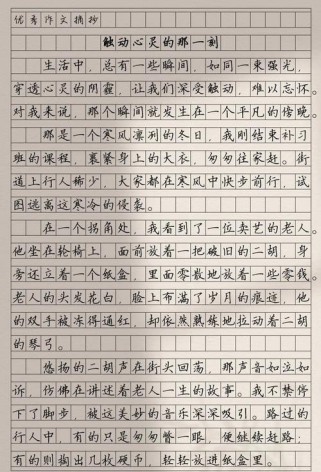 优秀作文摘抄
触动心灵的那一刻
生活中，总有一些瞬间，如同一束强光，
穿透心灵的阴霾，让我们深受触动，难以忘怀。
对我来说，那个瞬间就发生在一个平凡的傍晚。
那是一个寒风凛冽的冬日，我刚结束补习
班的课程，裹紧身上的大衣，匆匆往家赶。街
道上行人稀少，大家都在寒风中快步前行，试
图逃离这寒冷的侵袭。
在一个拐角处，我看到了一位卖艺的老人。
他坐在轮椅上，面前放着一把破旧的二胡，身
旁还立着一个纸盒，里面零散地放着一些零钱。
老人的头发花白，脸上布满了岁月的痕迹，他
的双手被冻得通红，却依然熟练地拉动着二胡
的琴弓。
悠扬的二胡声在街头回荡，那声音如泣如
诉，仿佛在讲述着老人一生的故事。我不禁停
下了脚步，被这美妙的音乐深深吸引。路过的
行人中，有的只是匆匆瞥一眼，便继续赶路；
有的则掏出几枚硬币，轻轻放进纸盒里。